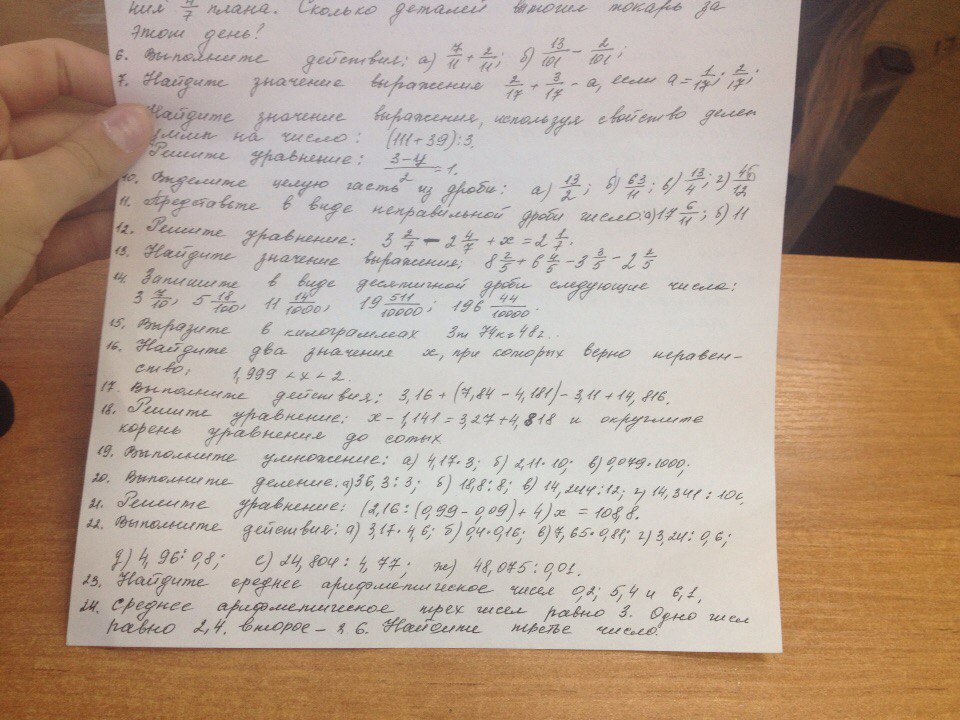 ния 4/7 плана. Сколько деталей выточил токарь за
этот день?
6. Выполните действия: а) 7/11 + 2/11; б) 13/101 - 2/101;
7. Найдите значение выражения 2/17 + 3/17 - а, если а = 1/17; 2/17;
Найдите значение выражения, используя свойство делен
уммы на число: (111+39):3.
Решите уравнение: (3-y)/2 = 1.
10. Выделите целую часть из дроби: а) 13/2; б) 63/11; в) 13/4; г) 46/12
11. Представьте в виде неправильной дроби число: а) 17 6/11; б) 11
12. Решите уравнение: 3 2/7 - 2 4/7 + x = 2 1/7.
13. Найдите значение выражения: 8 2/5 + 6 4/5 - 3 3/5 - 2 1/5
14. Запишите в виде десятичной дроби следующие числа:
3 7/10; 5 18/100; 11 14/1000; 19 511/10000; 196 44/10000.
15. Выразите в килограммах 3т 74кг 48г.
16. Найдите два значения x, при которых верно неравен-
ство: 1,999 < x < 2.
17. Выполните действия: 3,16 + (7,84 - 4,181) - 3,11 + 14,816.
18. Решите уравнение: x - 1,141 = 3,27 + 4,818 и округлите
корень уравнения до сотых
19. Выполните умножение: а) 4,17·3; б) 2,11·10; в) 0,079·1000;
20. Выполните деление: а) 36,3:3; б) 18,8:8; в) 14,244:12; г) 14,341:100,
21. Решите уравнение: (2,16:(0,99-0,09)+4)x = 108,8.
22. Выполните действия: а) 3,17·1,6; б) 0,4·0,16; в) 7,65·0,81; г) 3,24:0,6;
д) 4,96:0,8; е) 24,804:4,77; ж) 48,075:0,01.
23. Найдите среднее арифметическое чисел 0,2; 5,4 и 6,1.
24. Среднее арифметическое трех чисел равно 3. Одно числ
равно 2,4. второе - 2 6. Найдите третье число.